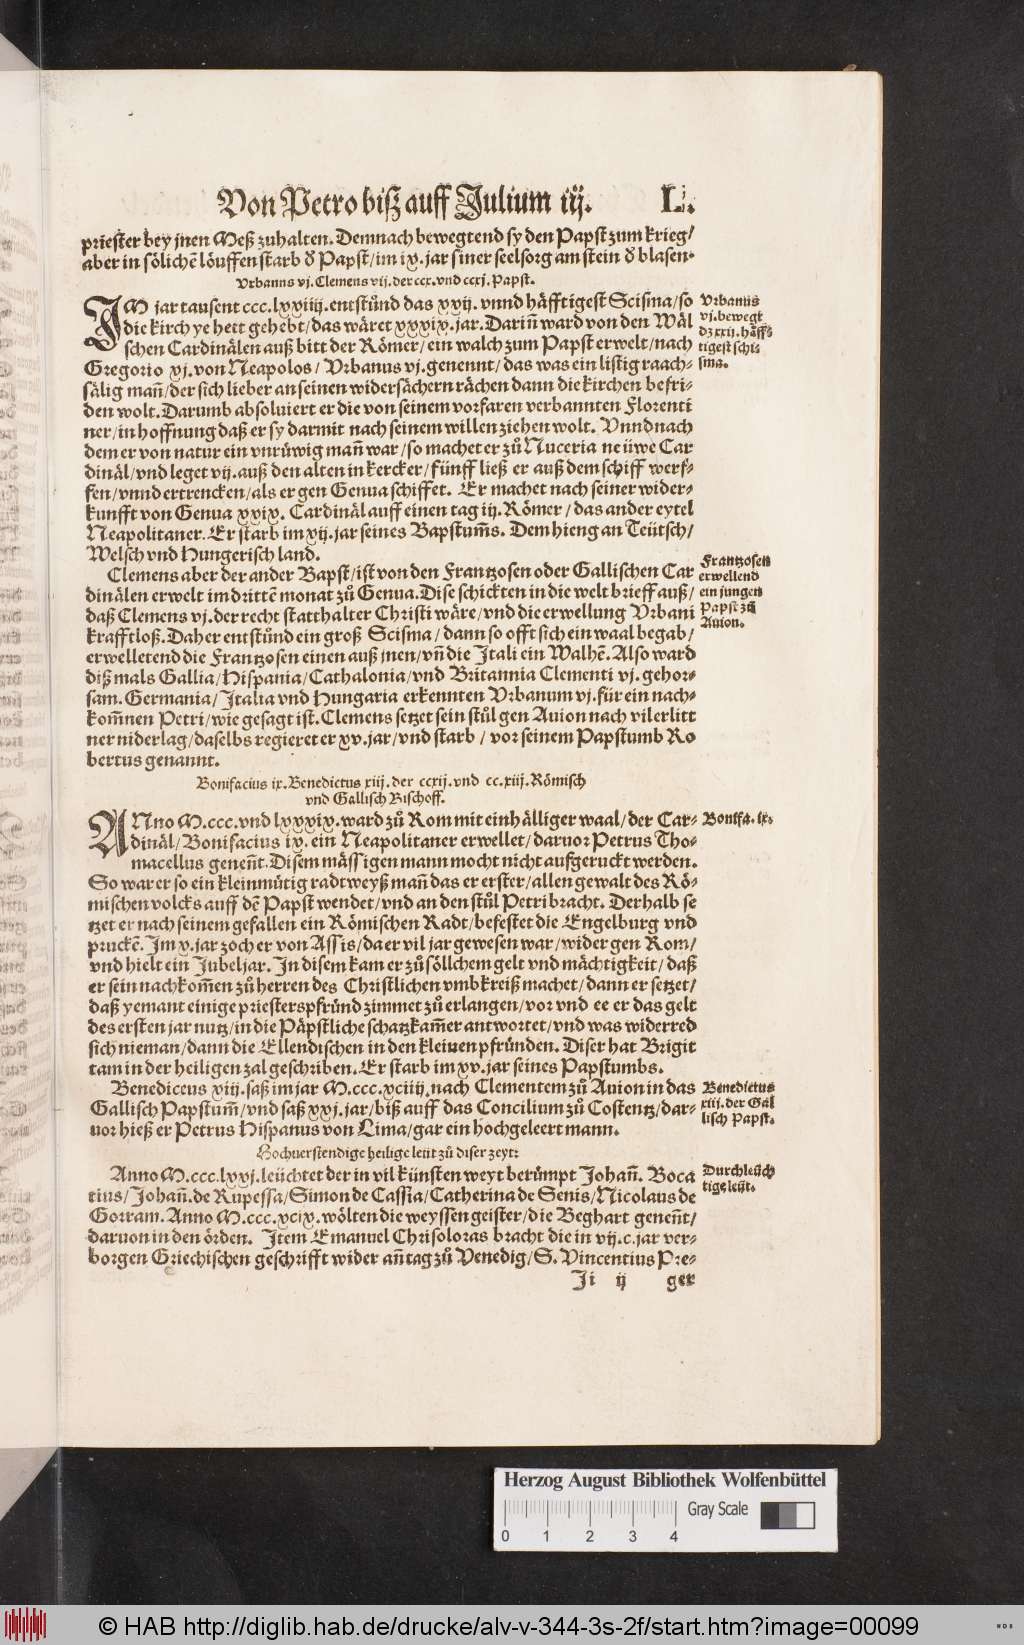 Von Petro biß auff Julium iij. L.
priester bey jnen Meß zuhalten. Demnach bewegtend sy den Papst zum krieg/
aber in sölichē löuffen starb d̓ Papst/im ix. jar siner seelsorg am stein d̓ blasen.
Vrbanus vj. Clemens vij. der ccx. vnd ccxj. Papst.
IM jar tausent ccc. lxxiiij. entstůnd das xxij. vnnd häfftigest Scisma/so
die kirch ye hett gehebt/das wäret xxxix. jar. Dariñ ward von den Wäl
schen Cardinälen auß bitt der Römer/ein walch zum Papst erwelt/nach
Gregorio xj. von Neapolos/Vrbanus vj. genennt/das was ein listig raach-
sälig mañ/der sich lieber an seinen widersächern rächen dann die kirchen befri-
den wolt. Darumb absoluiert er die von seinem vorfaren verbannten Florenti
ner/in hoffnung daß er sy darmit nach seinem willen ziehen wolt. Vnnd nach
dem er von natur ein vnrüwig mañ war/so machet er zů Nuceria neüwe Car
dinäl/vnd leget vij. auß den alten in kercker/fünff ließ er auß dem schiff werf-
fen/vnnd ertrencken/als er gen Genua schiffet. Er machet nach seiner wider-
kunfft von Genua xxix. Cardinäl auff einen tag iij. Römer/das ander eytel
Neapolitaner. Er starb im xij. jar seines Bapstum̄s. Dem hieng an Teütsch/
Welsch vnd Hungerisch land.
Vrbanus
vj. bewegt
dz xxij. häff-
tigest schis
sma.
Clemens aber der ander Bapst/ist von den Frantzosen oder Gallischen Car
dinälen erwelt im drittē monat zů Genua. Dise schickten in die welt brieff auß/
daß Clemens vj. der recht statthalter Christi wäre/vnd die erwellung Vrbani
krafftloß. Daher entstůnd ein groß Scisma/dann so offt sich ein waal begab/
erwelletend die Frantzosen einen auß jnen/vñ die Itali ein Walhē. Also ward
diß mals Gallia/Hispania/Cathalonia/vnd Britannia Clementi vj. gehor-
sam. Germania/Italia vnd Hungaria erkennten Vrbanum vj. für ein nach-
kom̄nen Petri/wie gesagt ist. Clemens setzet sein stůl gen Auion nach vil erlitt
ner niderlag/daselbs regieret er xv. jar/vnd starb/vor seinem Papstumb Ro
bertus genannt.
Frantzosen
erwellend
ein jungen
Papst zů
Auion.
Bonifacius ix. Benedictus xiij. der ccxij. vnd cc.xiij. Römisch
vnd Gallisch Bischoff.
ANno M.ccc. vnd lxxxix. ward zů Rom mit einhälliger waal/der Car-
dinäl/Bonifacius ix. ein Neapolitaner erwellet/daruor Petrus Tho-
macellus geneñt. Disem mässigen mann mocht nicht aufgeruckt werden.
So war er so ein kleinmütig radtweyß mañ das er erster/allen gewalt des Rö-
mischen volcks auff dē Papst wendet/vnd an den stůl Petri bracht. Derhalb se
tzet er nach seinem gefallen ein Römischen Radt/befestet die Engelburg vnd
pruckē. Im x. jar zoch er von Assis/da er vil jar gewesen war/wider gen Rom/
vnd hielt ein Jubeljar. In disem kam er zů söllchem gelt vnd mächtigkeit/daß
er sein nachkom̄en zů herren des Christlichen vmbkreiß machet/dann er setzet/
daß yemant einige priesterspfründ zimmet zů erlangen/vor vnd ee er das gelt
des ersten jar nutz/in die Päpstliche schatzkam̄er antwortet/vnd was widerred
sich nieman/dann die Ellendischen in den kleinen pfründen. Diser hat Brigit
tam in der heiligen zal geschriben. Er starb im xv. jar seines Papstumbs.
Bonifa. ix.
Benediceus xiij. saß im jar M.ccc.xciiij. nach Clementem zů Auion in das
Gallisch Papstum̄/vnd saß xxj. jar/biß auff das Concilium zů Costentz/dar-
uor hieß er Petrus Hispanus von Lima/gar ein hochgeleert mann.
Benedictus
xiij. der Gal
lisch Papst.
Hochuerstendige heilige leüt zů diser zeyt:
Anno M.ccc.lxxj. leüchtet der in vil künsten weyt berümpt Johañ. Boca
tius/Johañ. de Rupessa/Simon de Cassia/Catherina de Senis/Nicolaus de
Gorram. Anno M.ccc.xcix. wölten die weyssen geister/die Beghart geneñt/
daruon in den örden. Item Emanuel Chrisoloras bracht die in vij.c. jar ver-
borgen Griechischen geschrifft wider añ tag zů Venedig/S. Vincentius Pre-
Durchleüch
tige leüt.
Ji ij ger
Herzog August Bibliothek Wolfenbüttel
Gray Scale
0 1 2 3 4
© HAB http://diglib.hab.de/drucke/alv-v-344-3s-2f/start.htm?image=00099